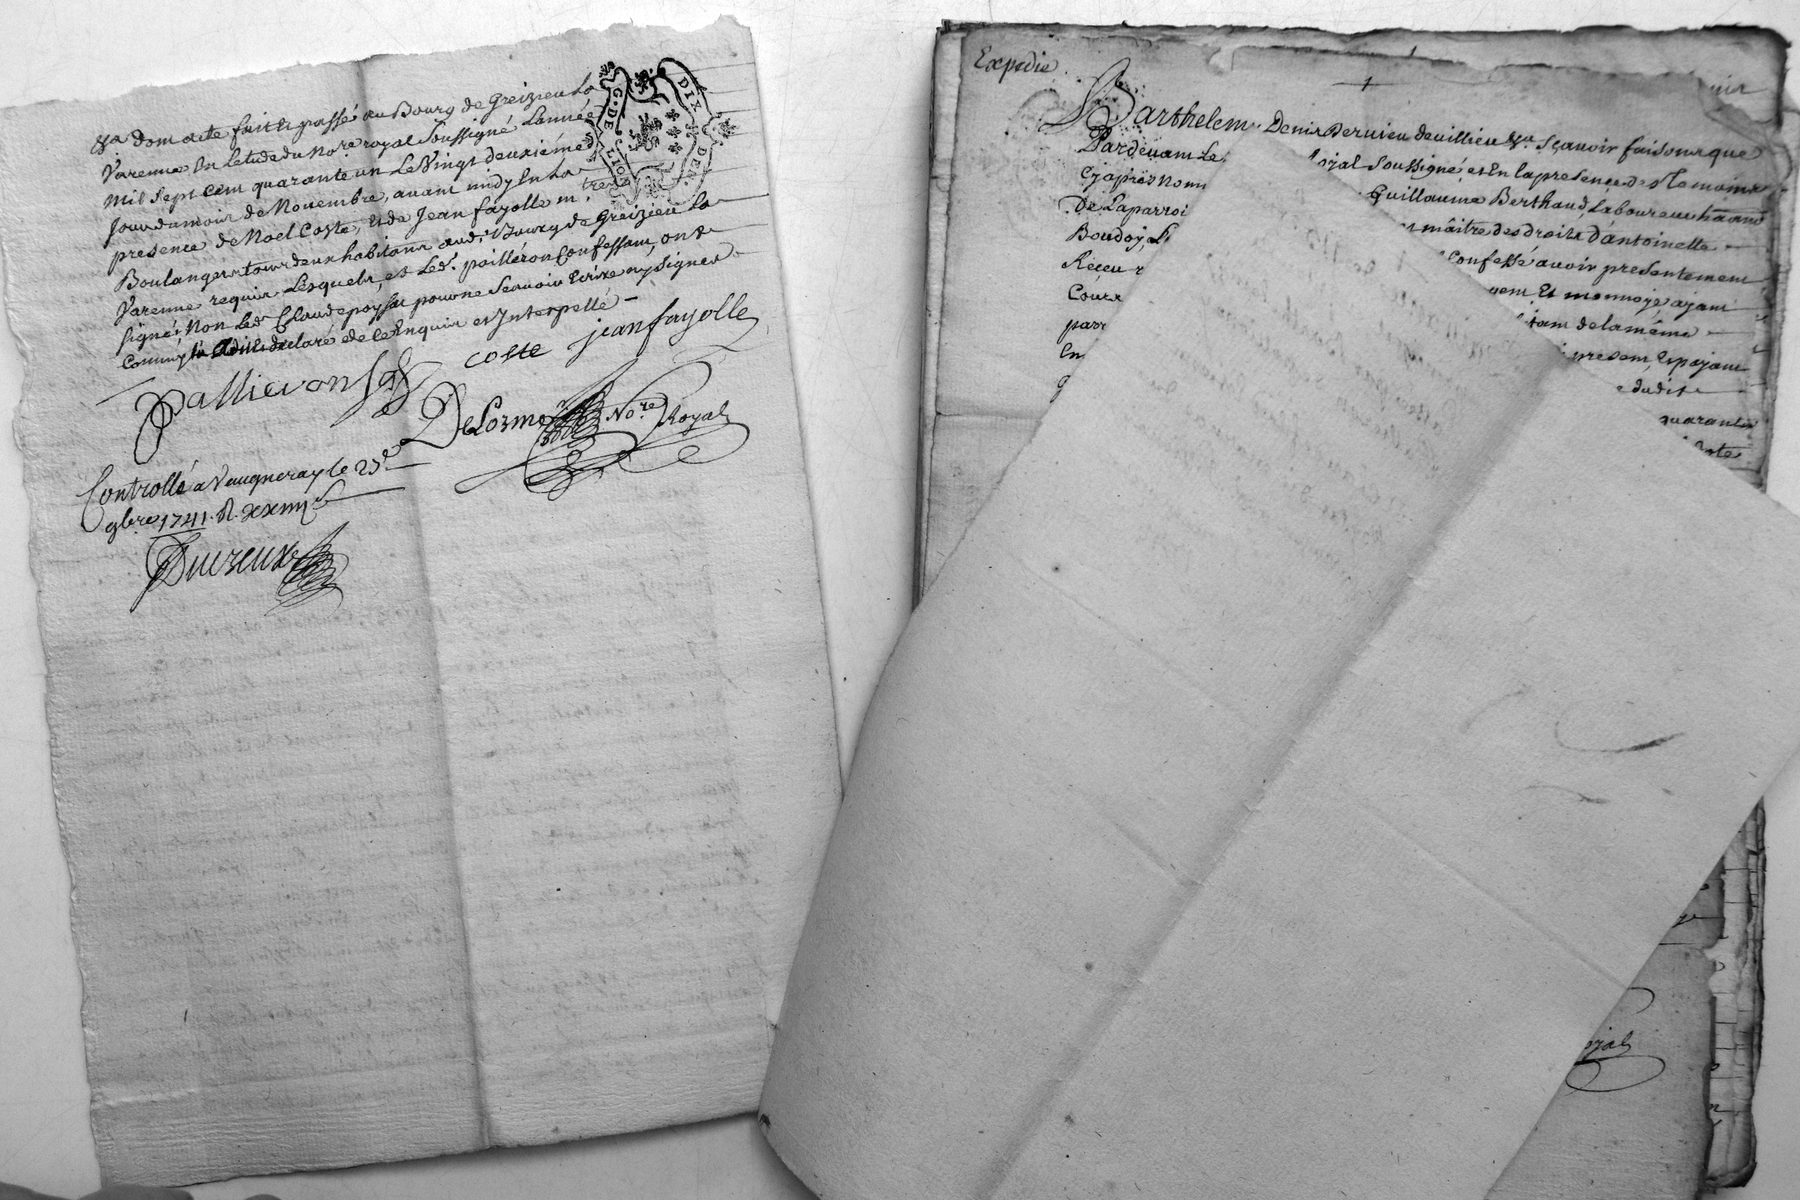 &a dom acte fait & passé au Bourg de Greizieu La
Varenne En Letude du No.re royal soussigné Lannée
mil sept cem quarante un Le Vingt deuxiéme
jour du mois de Novembre, avant midy En La
presence de Noel Coste, et de Jean fayolle m.tre
Boulangers tous deux habitans aud.t Bourg de Greizieu La
Varenne requis Lesquels, et Led.t pailléron Confessam, ont
signé, Non Led.t Claude poyssat pour ne sçavoir Ecrire ny signer
Comm declaré de ce Enquis et Interpellé
coste jean fayolle
Pallieron
DeLorme No.re Royal
Controllé a Vaugneray le 25e
9bre 1741. R. xxiiij s
Dureux
G. DE LION
DIX DEN.
Expedie
Barthelemy Denis Dervieu de villieu &a Sçavoir faisons que
Pardevam Le royal soussigné, et En la presence des temoins
Cy apres nomm Guillaume Berthaud, Laboureur ha
De La parroi maître des droits d'antoinette
Boudoy L
Receu confessé avoir presentement
Cour Et monnoye ayam
parr de la méme
En presem, Et payam
dudit
quarante
dote
oyal